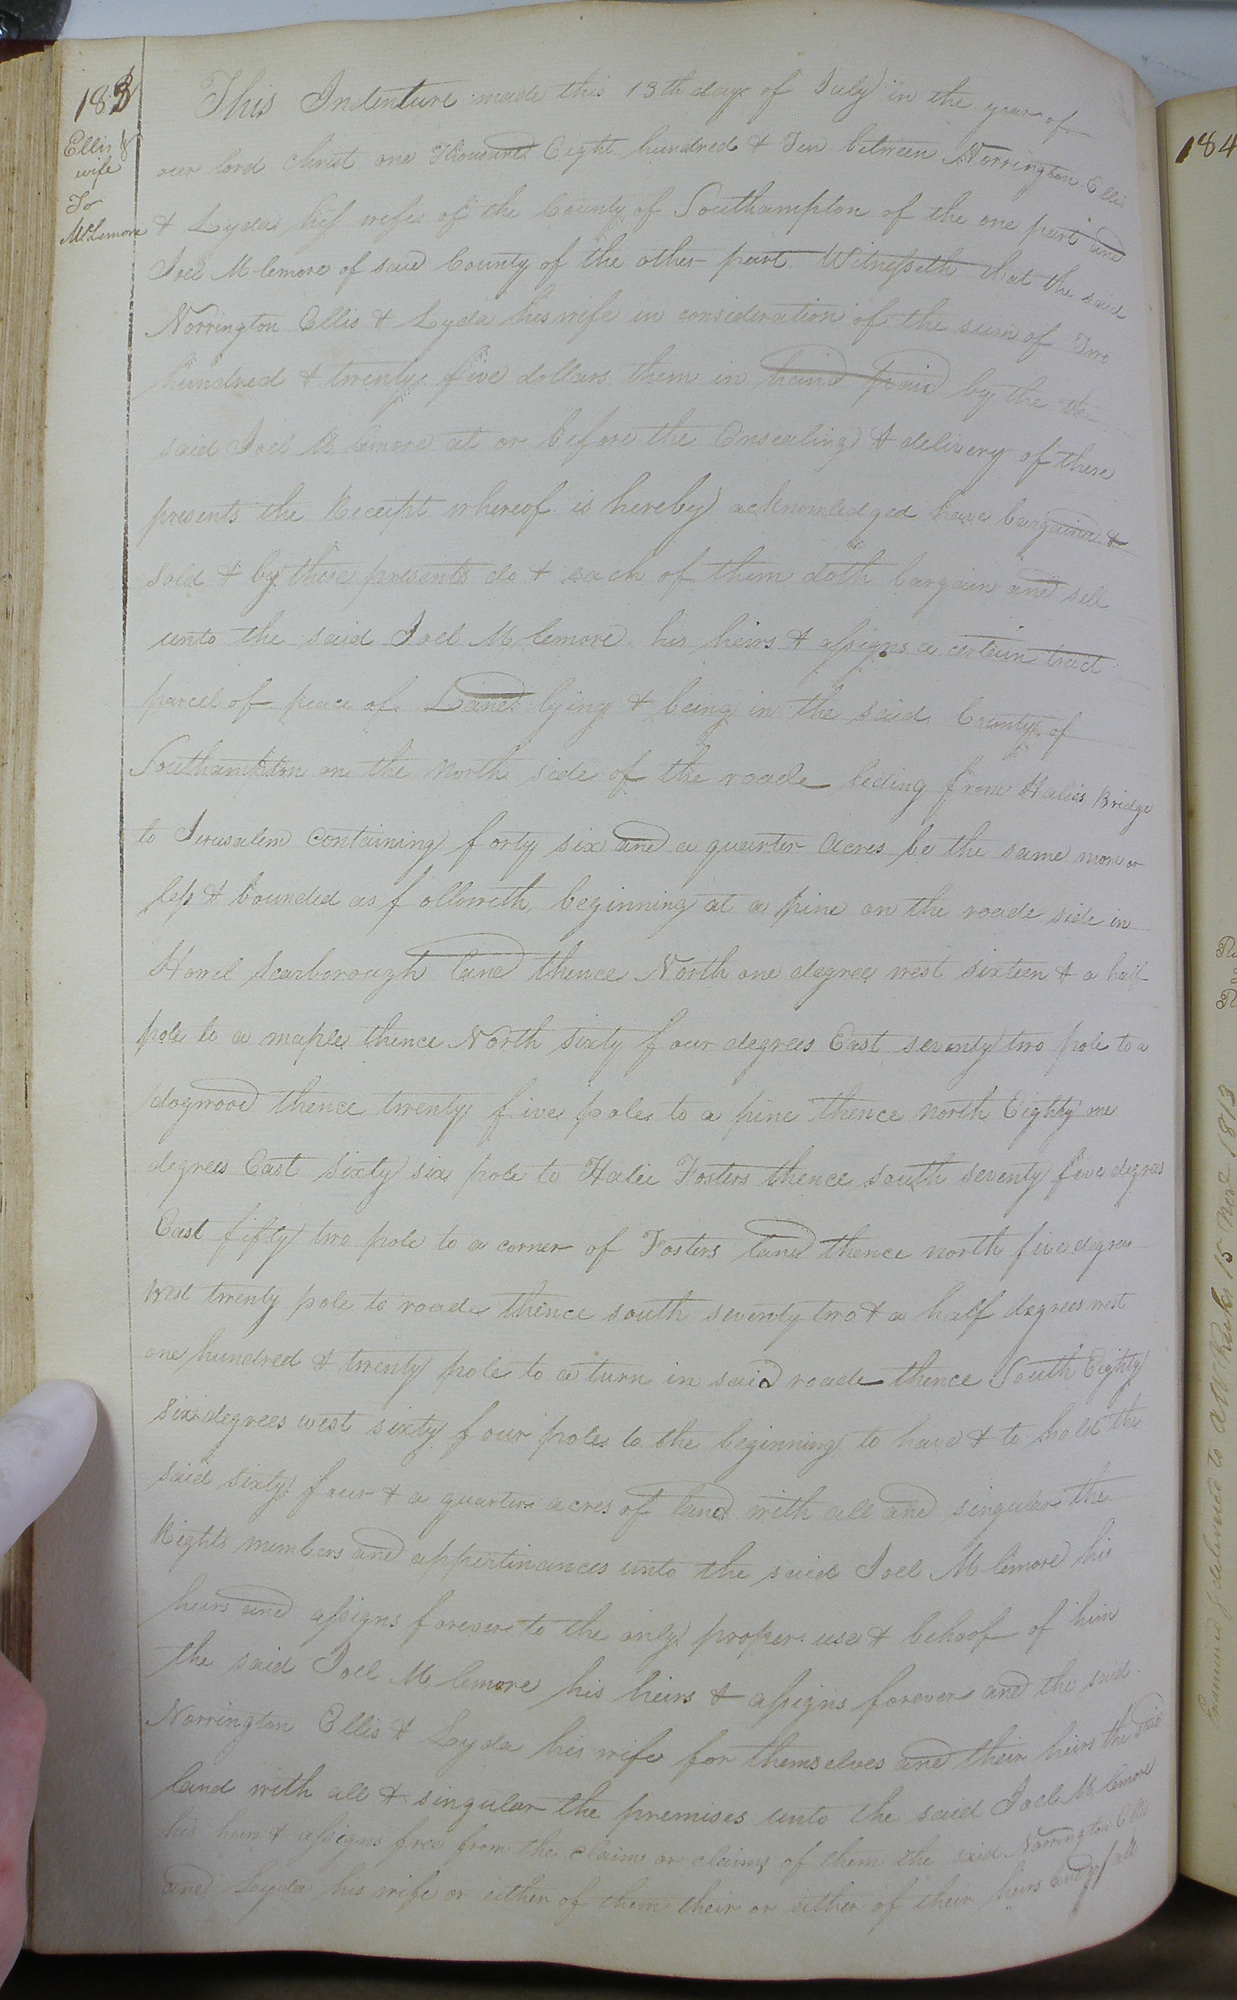 183
Ellis &
wife
To
McLemore
This Indenture made this 13th day of July in the year of
our lord Christ one Thousand Eight hundred & Ten between Norrington Ellis
& Lyda his wife of the County of Southampton of the one part and
Joel Mclemore of said County of the other part Witnesseth that the said
Norrington Ellis & Lyda his wife in consideration of the sum of Two
hundred & twenty five dollars them in hand paid by the
said Joel Mclemore at or before the Ensealing & delivery of these
presents the Receipt whereof is hereby acknowledged have bargaind &
sold & by these presents do & each of them doth bargain and sell
unto the said Joel Mclemore his heirs & assigns a certain tract
parcel of peace of Land lying & being in the said County of
Southampton on the north side of the roade leding from Hales Bridge
to Jerusalem containing forty six and a quarter Acres be the same more or
less & bounded as followeth beginning at a pine on the roade side in
Howel Scarborough land thence North one degree west sixteen & a half
pole to a maple thence North sixty four degrees East seventy two pole to a
dogwood thence twenty five poles to a pine thence north Eighty one
degrees East sixty six pole to Fosters thence south seventy five degrees
East fifty two pole to a corner of Fosters land thence north five degrees
West twenty pole to roade thence south seventy two & a half degrees west
one hundred & twenty pole to a turn in said roade thence South Eighty
six degrees west sixty four poles to the beginning to have & to hold the
said sixty four & a quarter acres of land with all and singular the
Rights members and appertinances unto the said Joel Mclemore his
heirs and assigns forever to the only proper use & behoof of him
the said Joel Mclemore his heirs & assigns forever and the said
Norrington Ellis & Lyda his wife for themselves and their heirs the said
land with all & singular the premises unto the said Joel Mclemore
his heirs & assigns free from the claim or claims of them the said Norrington Ellis
and Lyda his wife or either of them their or either of their heirs and of all
184
Examined & delivered to 15 Nov 1813